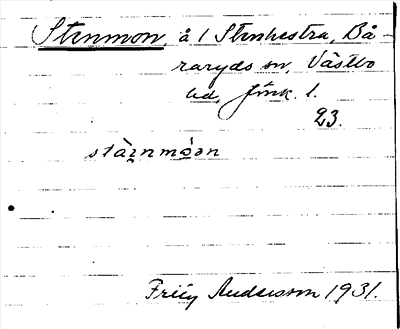 Stenmon, å 1 Stenhestra, Bå-
raryds sn, Västbo
hd, Jönk. l.
23.
stäinmóən
Fritz Andersson 1931.